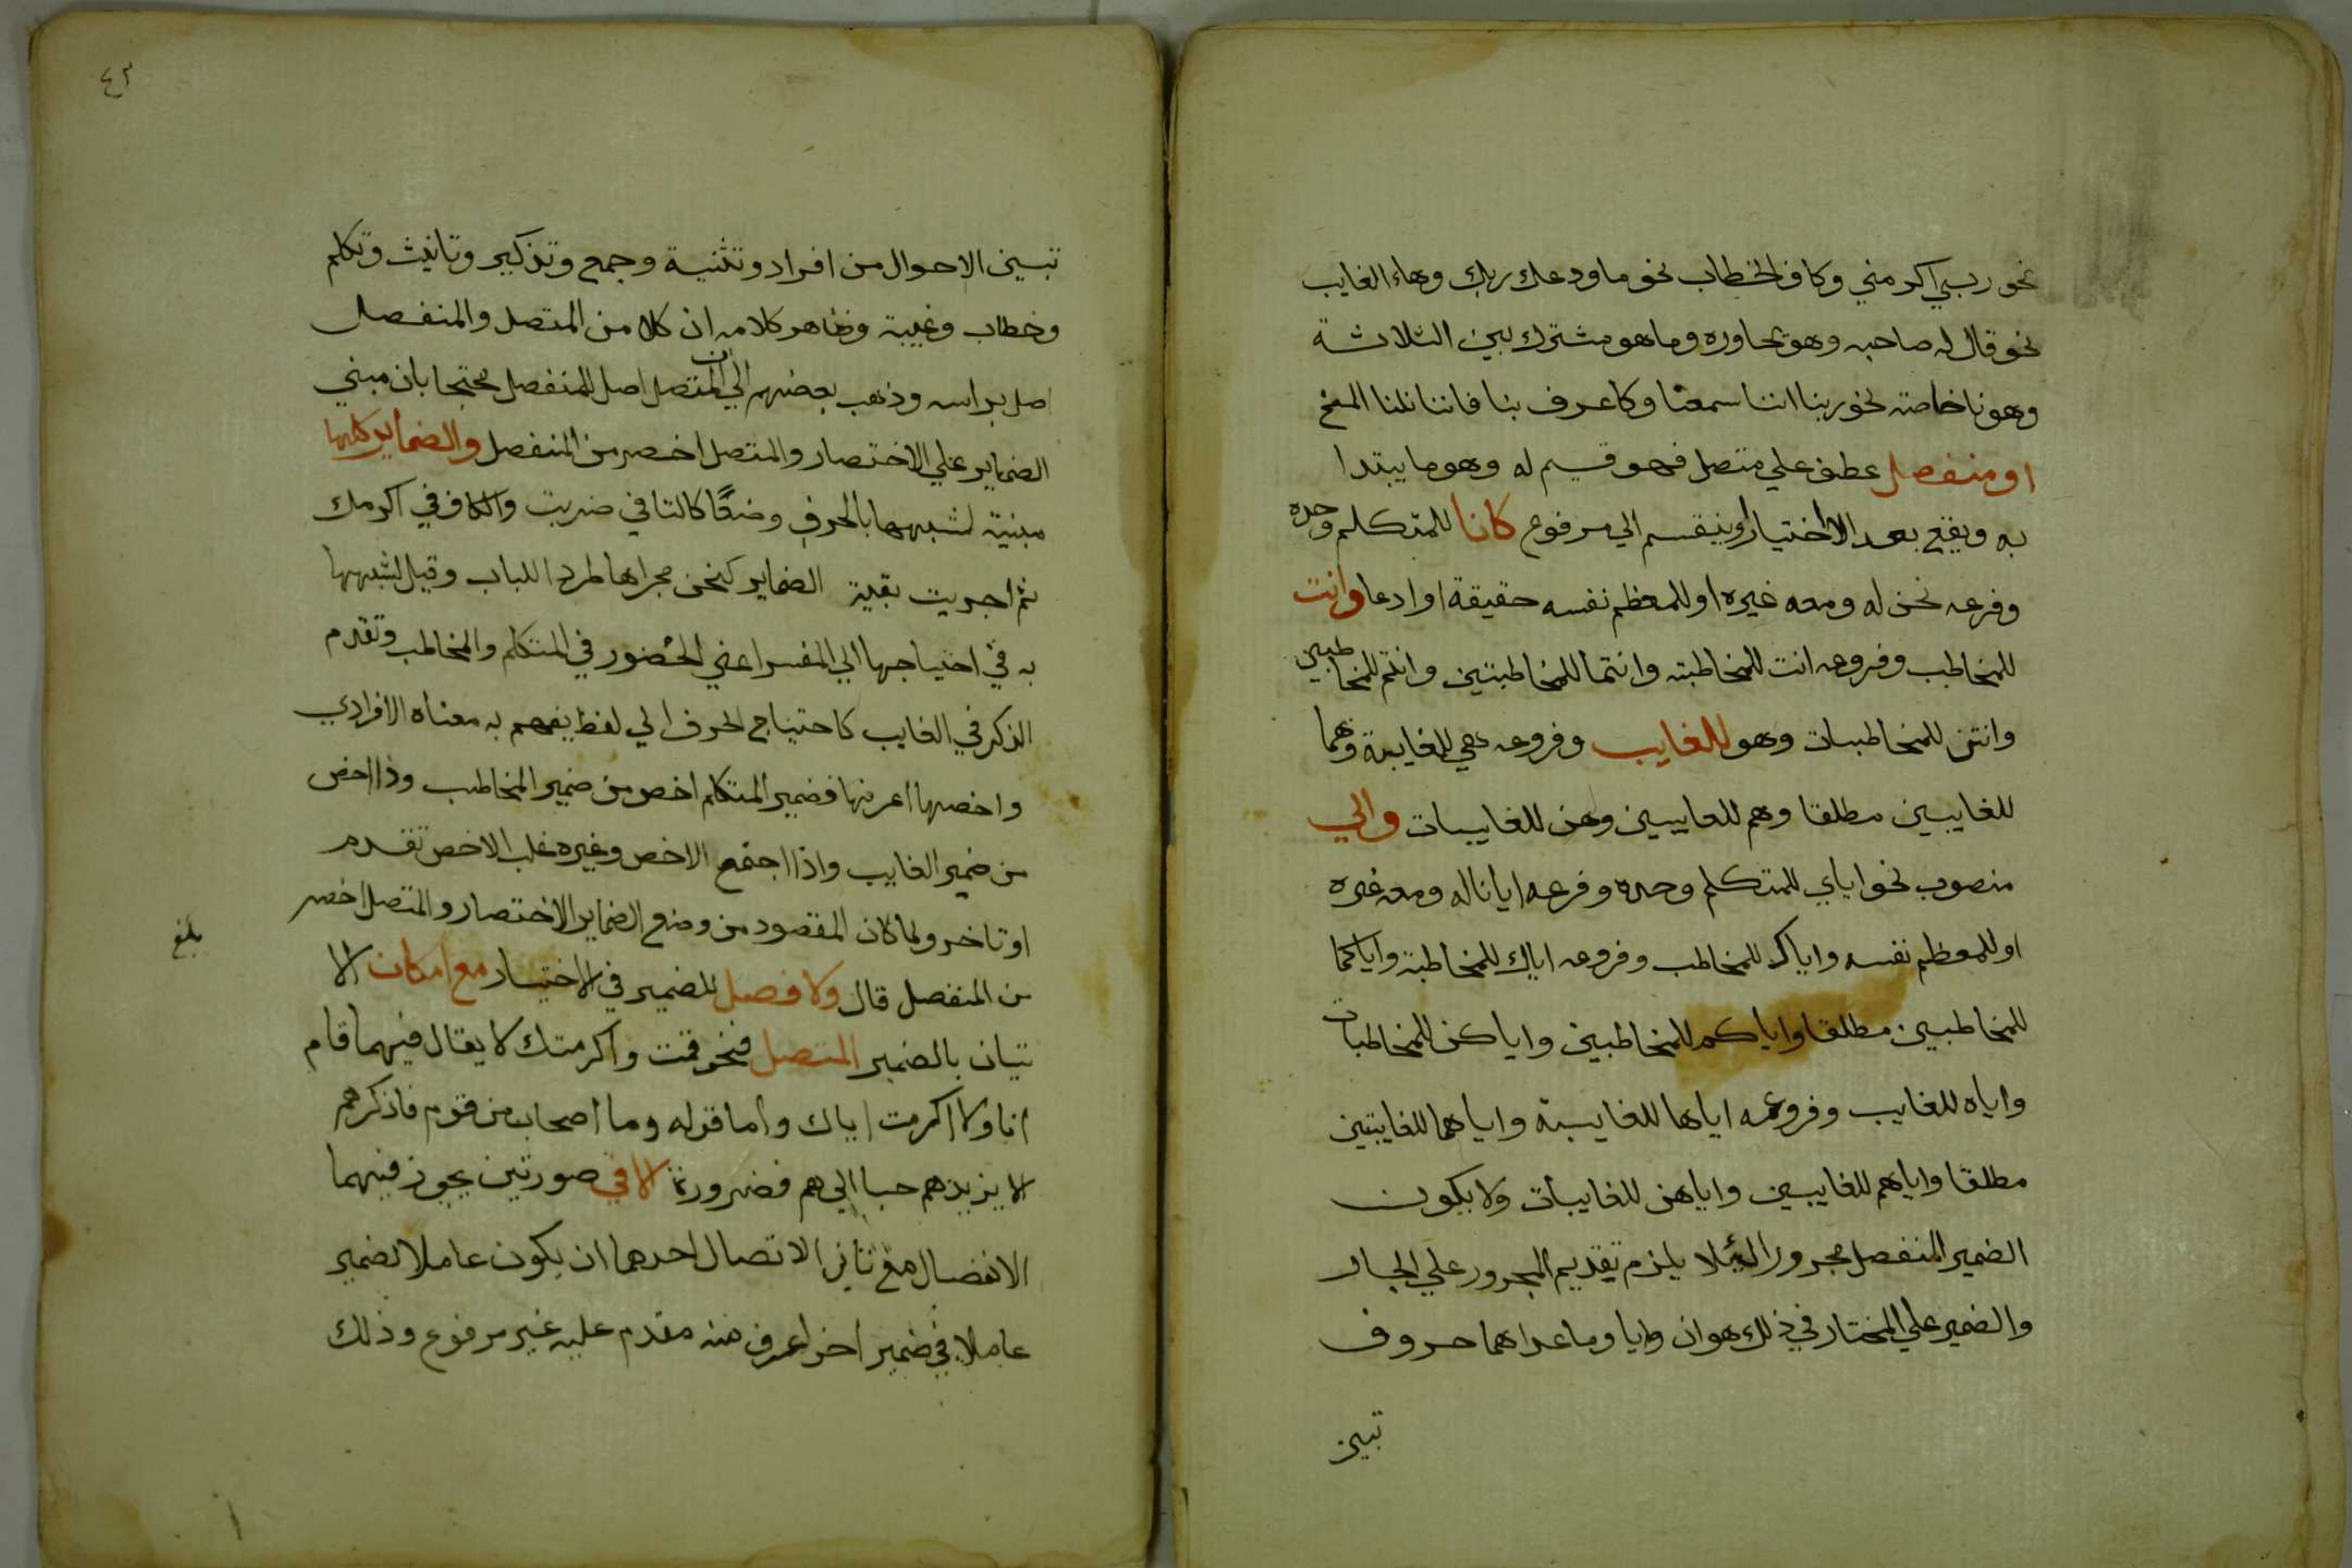 نحو ربي اكرمني وكاف الخطاب نحو ما ودعك ربك وهاء الغايب
نحو قال له صاحبه وهو يحاوره وما هو مشترك بين الثلاثة
وهو نا خاصة نحو ربنا اننا سمعنا وكاعرف بنا فاننا نلنا المنح
او منفصل عطف علي متصل فهو قسيم له وهو ما يبتدا
به ويقع بعد الا اختيارا وينقسم الي مرفوع كانا للمتكلم وحده
وفرعه نحن له ومعه غيره او للمعظم نفسه حقيقة او ادعا وانت
للمخاطب وفروعه انت للمخاطبته وانتما للمخاطبتين وانتم للمخاطبين
وانتن للمخاطبات وهو للغايب وفروعه هي للغايبة وهما
للغايبين مطلقا وهم للغايبين وهن للغايبات والي
منصوب نحو اياي للمتكلم وحده وفرعه ايانا له ومعه غيره
او للمعظم نفسه واياك للمخاطب وفروعه اياك للمخاطبة واياكما
للمخاطبين مطلقا واياكم للمخاطبين واياكن للمخاطبات
واياه للغايب وفروعه اياها للغايبة واياهما للغايبتين
مطلقا واياهم للغايبين واياهن للغايبات ولا يكون
الضمير المنفصل مجرورا لئلا يلزم تقديم المجرور علي الجار
والضمير علي المختار في ذلك هو ان وايا وما عداهما حروف
تبين
٤٢
تبين الاحوال من افراد وتثنية وجمع وتذكير وتانيث وتكلم
وخطاب وغيبة وظاهر كلامه ان كلا من المتصل والمنفصل
اصل براسه وذهب بعضهم الي ان المتصل اصل للمنفصل محتجا بان مبني
الضماير علي الاختصار والمتصل اخصر من المنفصل والضماير كلها
مبنية لشبهها بالحرف وضعًا كالتا في ضربت والكاف في اكرمك
ثم اجريت بقية الضماير كنحن مجراها طردا للباب وقيل لشبهها
به في احتياجها الي المفسر اعني الحضور في المتكلم والمخاطب وتقدم
الذكر في الغايب كاحتياج الحرف الي لفظ يفهم به معناه الافرادي
واخصها اعرفها فضمير المتكلم اخص من ضمير المخاطب وذا اخص
من ضمير الغايب واذا اجتمع الاخص وغيره غلب الاخص تقدم
او تاخر ولما كان المقصود من وضع الضماير الاختصار والمتصل اخصر
بلغ
من المنفصل قال ولا فصل للضمير في الاختيار مع امكان الا
تيان بالضمير المتصل فنحو قمت واكرمتك لا يقال فيهما قام
انا ولا اكرمت اياك واما قوله وما اصحاب من قوم فاذكرهم
الا يزيدهم حبا الي هم فضرورة الا في صورتين يجوز فيهما
الانفصال مع تاتي الاتصال احدهما ان يكون عاملا لضمير
عاملا في ضمير اخر اعرف منه مقدم عليه غير مرفوع وذلك